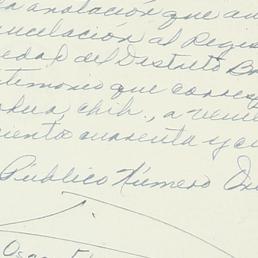 a anotación que an
ncelación al Regis
edad del Distrito B
timonio que corres
dua, Chih., a vein
iento cuarenta y c
Público Número